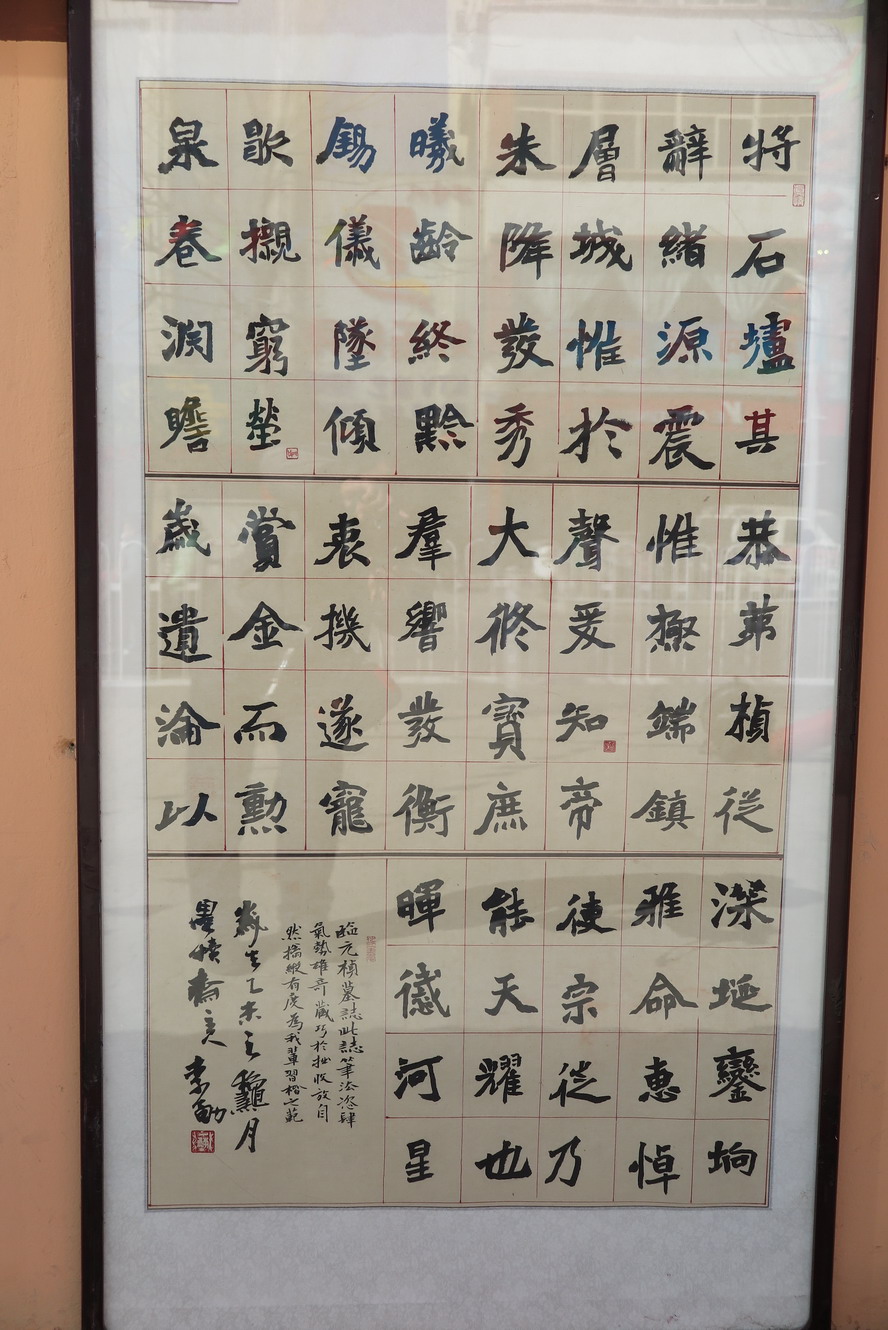 将石壚其
辭緒源震
層城惟於
朱降發秀
曦齡終黔
錫儀墜傾
歇櫬窮塋
泉卷淵瞻
恭第楨從
惟極端鎮
聲爰知帝
大修寶庶
羣響發衡
衷機遂寵
賞金而勳
歲遺淪以
深埏鑾坰
雅命惠悼
使宗從乃
能天耀也
暉徽河星
臨元楨墓誌此誌筆法恣肆
氣勢雄奇藏巧於拙收放自
然擒縱有度為我輩習楷之範
歲在乙未之龝月
墨 齋主 李勛